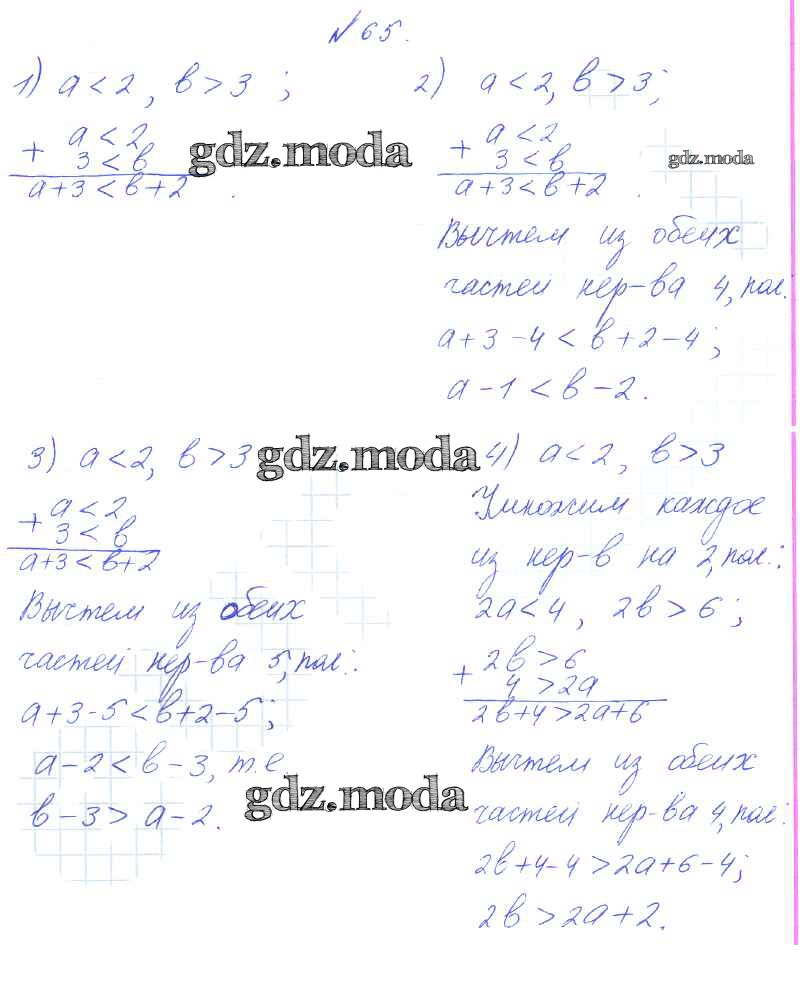 № 65.
1) a < 2, в > 3 ;
+ a < 2
3 < в
a + 3 < в + 2 .
gdz.moda
2) a < 2, в > 3 ;
+ a < 2
3 < в
a + 3 < в + 2 .
gdz.moda
Вычтем из обеих
частей нер-ва 4, пол.
a + 3 - 4 < в + 2 - 4 ;
a - 1 < в - 2 .
3) a < 2, в > 3
gdz.moda
+ a < 2
3 < в
a + 3 < в + 2
Вычтем из обеих
частей нер-ва 5, пол.:
a + 3 - 5 < в + 2 - 5 ;
a - 2 < в - 3, т.е.
в - 3 > a - 2 .
gdz.moda
4) a < 2, в > 3
Умножим каждое
из нер-в на 2, пол.:
2a < 4, 2в > 6 ;
+ 2в > 6
4 > 2a
2в + 4 > 2a + 6
Вычтем из обеих
частей нер-ва 4, пол.:
2в + 4 - 4 > 2a + 6 - 4 ;
2в > 2a + 2 .